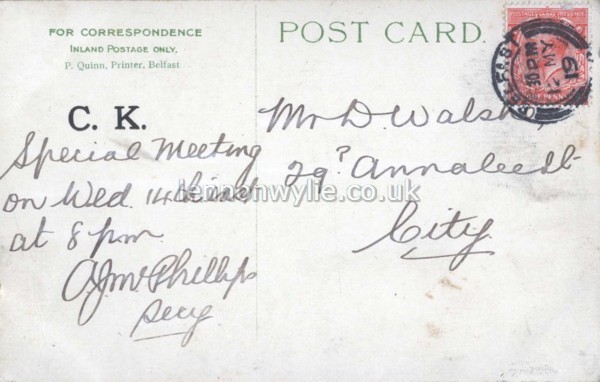 FOR CORRESPONDENCE
INLAND POSTAGE ONLY.
P. Quinn, Printer, Belfast
POST CARD.
C. K.
Special Meeting
on Wed. 14th inst
at 8 p.m.
Phillips
Secy
Mr D. Walsh
29 Annalee St
City
BELFAST
MY
19
lennonwylie.co.uk